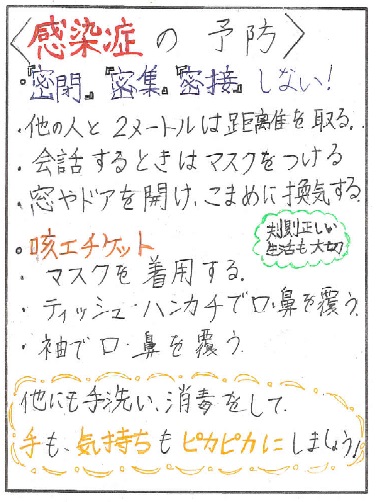 〈感染症の予防〉
・『密閉』『密集』『密接』しない!
・他の人と2メートルは距離を取る。
・会話するときはマスクをつける
・窓やドアを開け、こまめに換気する
。咳エチケット
規則正しい
生活も大切
・マスクを着用する。
・ティッシュ・ハンカチで口・鼻を覆う
・袖で口・鼻を覆う
他にも手洗い、消毒をして、
手も、気持ちもピカピカにしましょう!